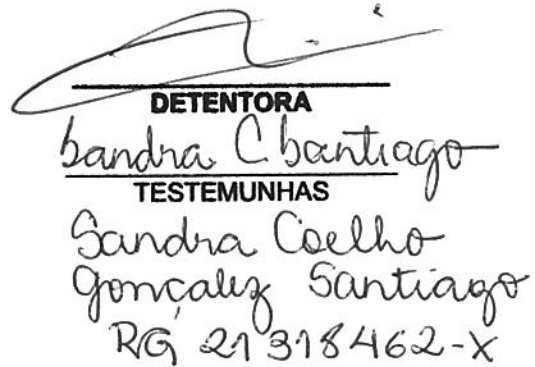 DETENTORA
Sandra C. Santiago
TESTEMUNHAS
Sandra Coelho
Gonçalez Santiago
RG 21 318 462-X